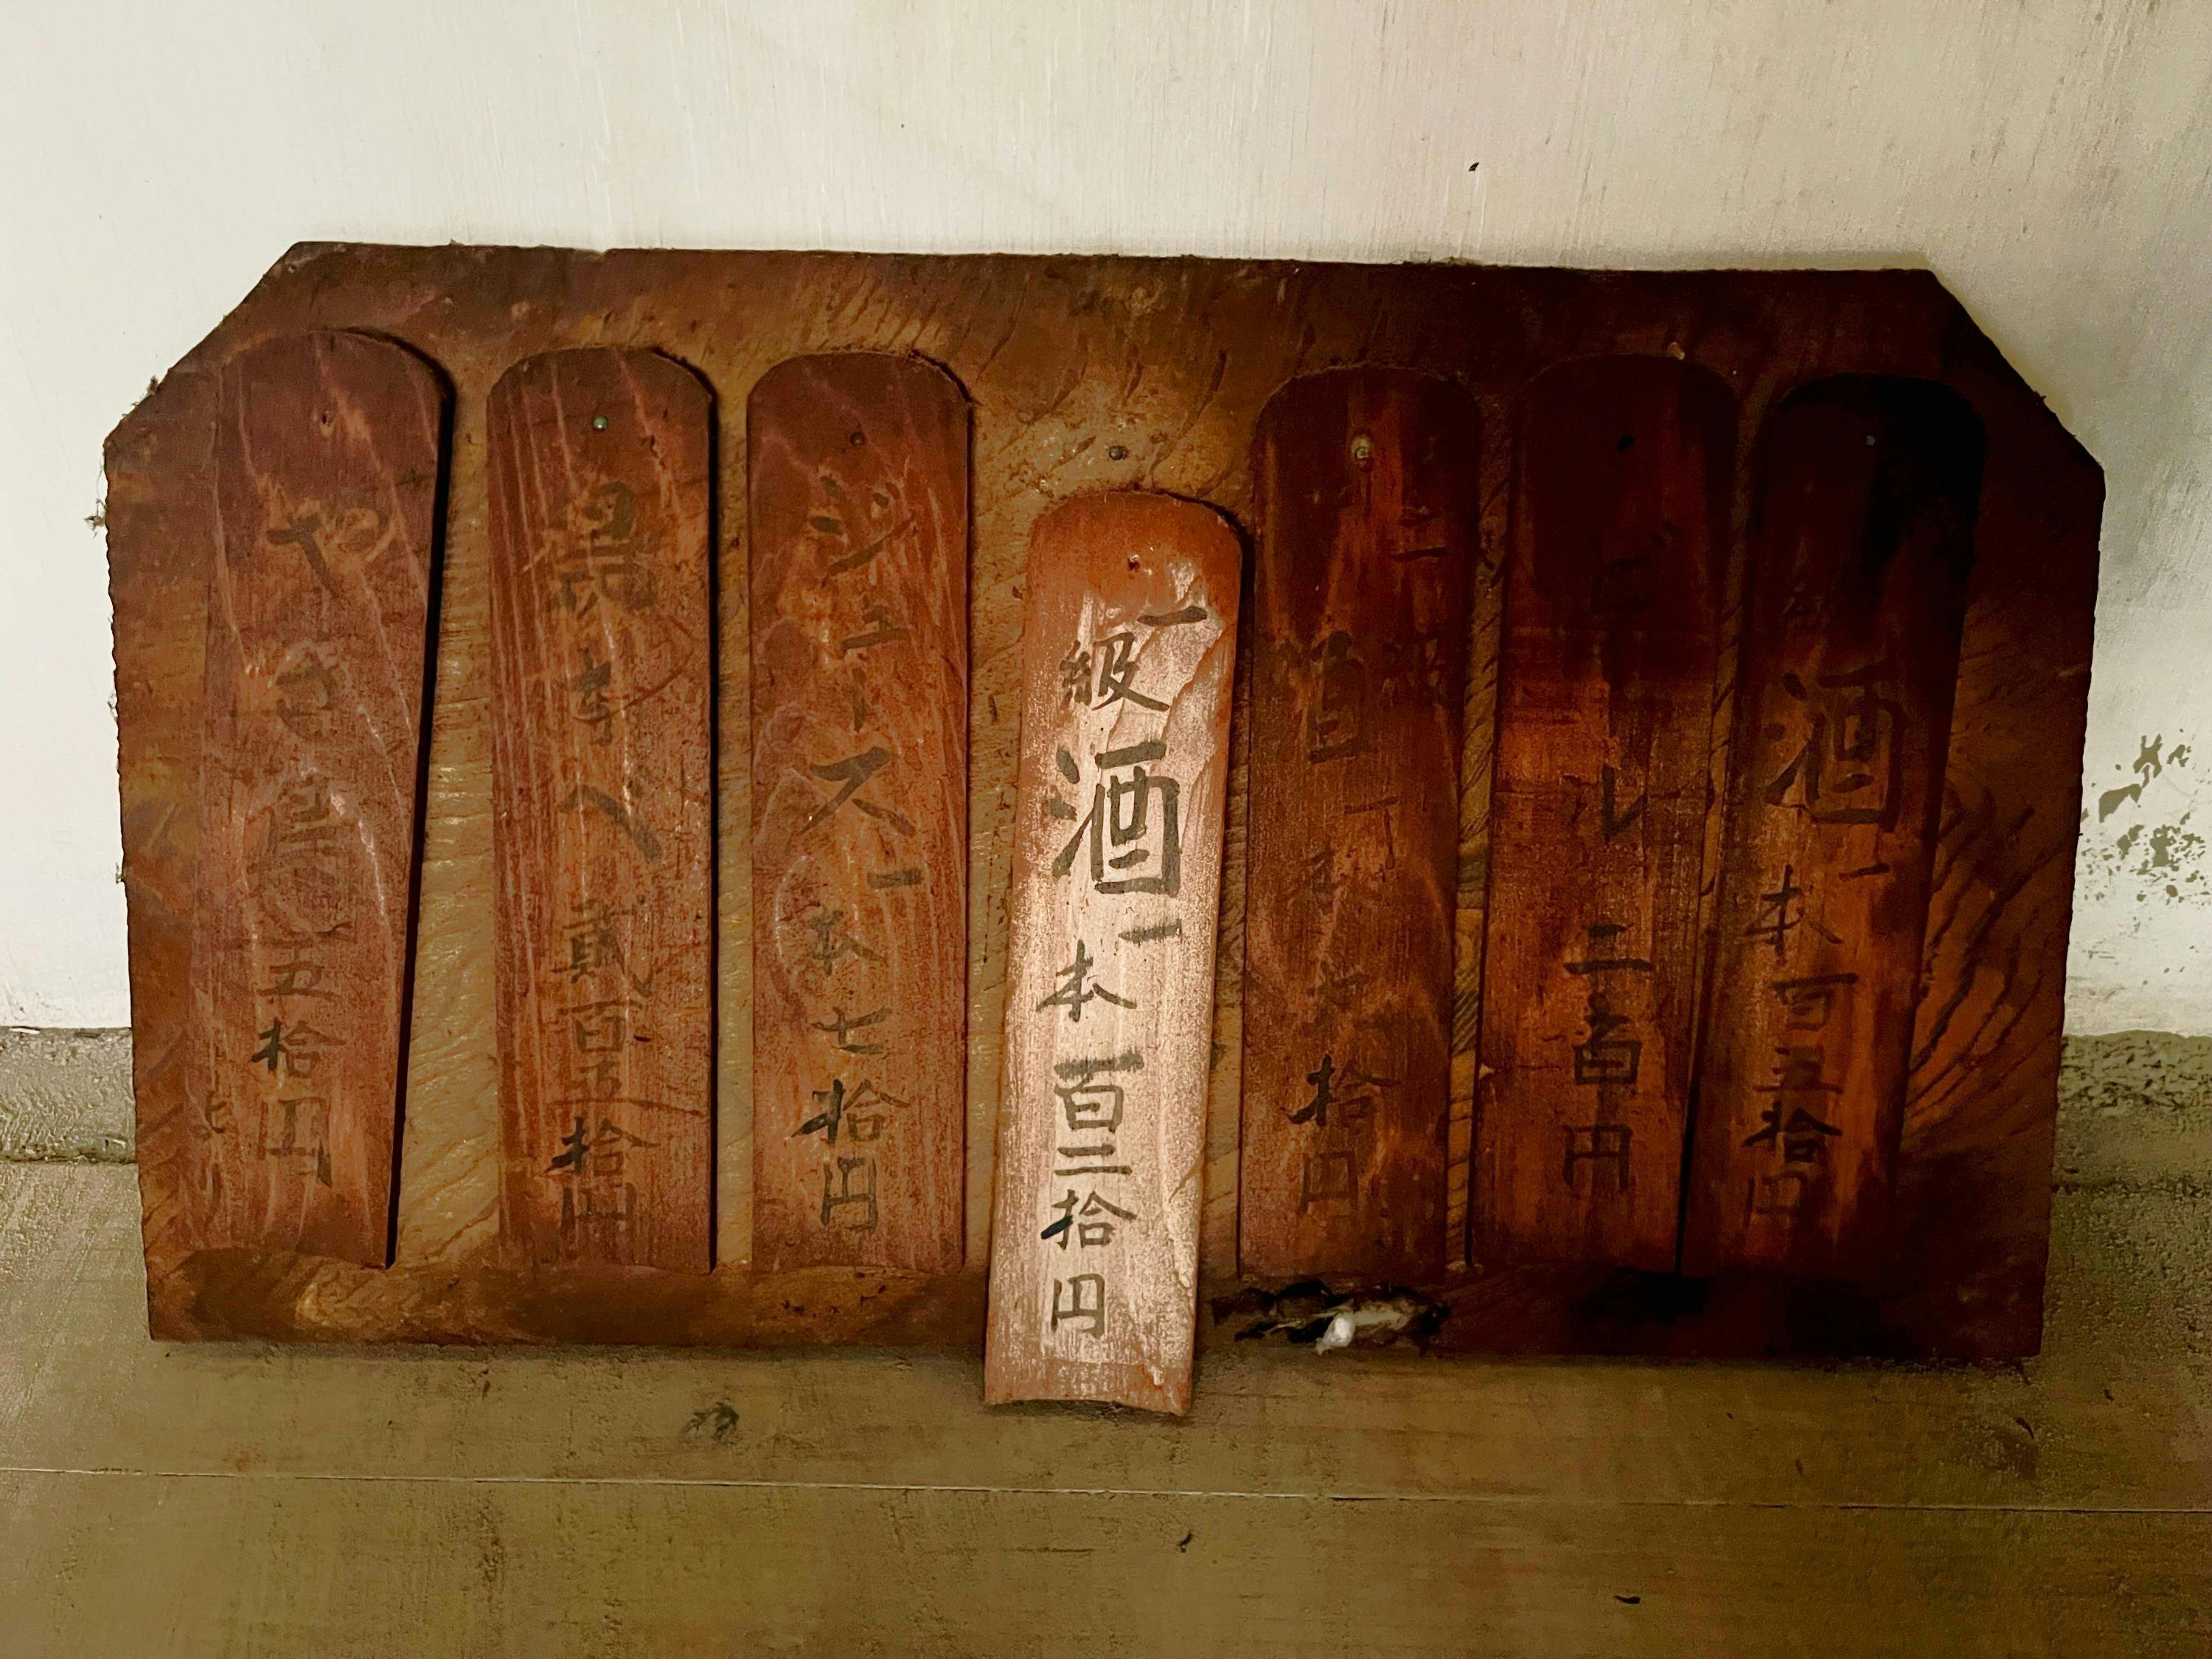 酒一本百五拾円
ビール二百円
二級酒一本拾円
一級酒一本百二拾円
ジュース一本七拾円
べ貳百五拾円
やき五拾円